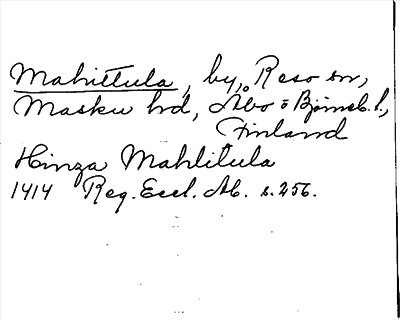 Mahittula, by, Reso sn,
Masku hd, Åbo o Björneb. l.,
Finland
Hinza Mahlitula
1414 Reg. Eccl. Ab. s. 256.